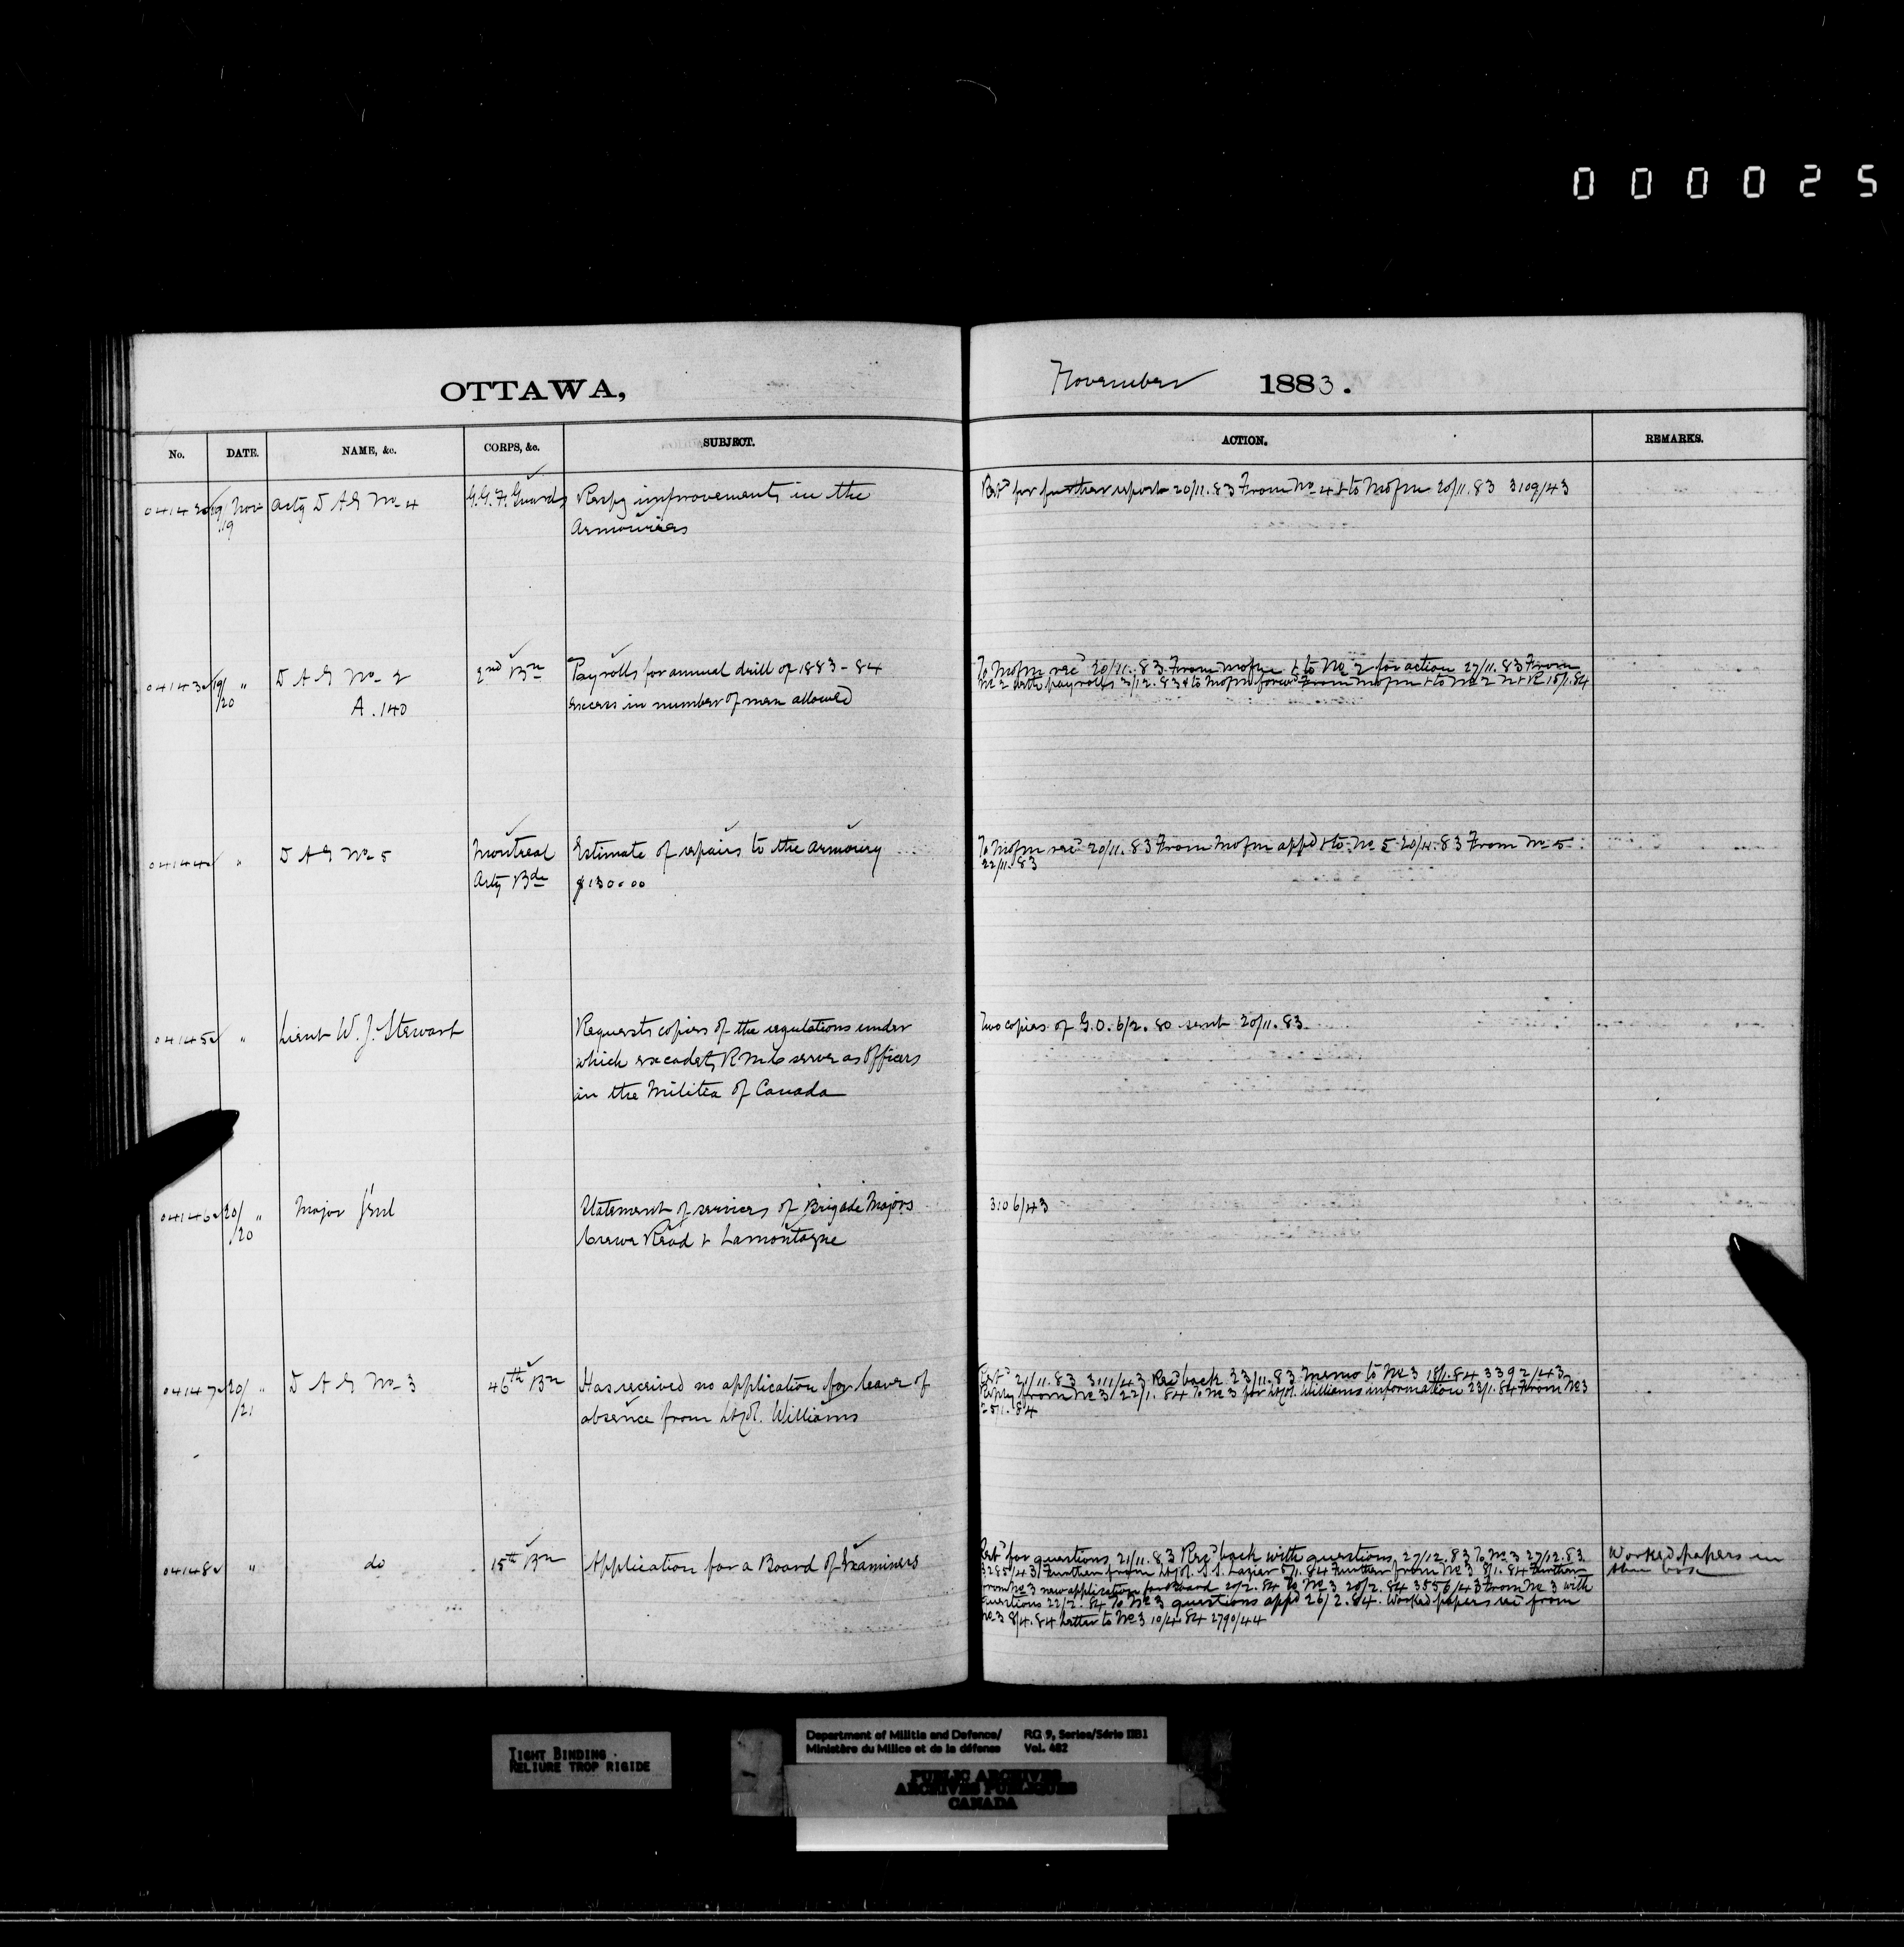 000025
OTTAWA,
November 1883.
No.
DATE.
NAME, &c.
CORPS, &c.
SUBJECT.
ACTION.
REMARKS.
04142 19/19 Nov Actg D A G No 4 G.G.F. Guards Respg improvements in the
Armouries
Retd for further report 20/11.83 From No 4 & to M of M 20/11.83 3109/43
04143 19/20 " D A G No 2 2nd Bn Payrolls for annual drill of 1883-84
A.140 excess in number of men allowed
To M of M recd 20/11.83 From M of M & to No 2 for action 27/11.83 From
No 2 with payrolls 3/12.83 & to M of M forwd From M of M & to No 2 15/1.84
04144 " D A G No 5 Montreal Estimate of repairs to the armoury
Arty Bde $130.00
To M of M recd 20/11.83 From M of M appd & to No 5 20/11.83 From No 5
22/11.83
04145 " Lieut W. J. Stewart Requests copies of the regulations under
which ex cadets R M C serve as Officers
in the Militia of Canada
Two copies of G.O. 6/2.80 sent 20/11.83
04146 20/20 " Major Genl Statement of services of Brigade Majors
Crewe Read & Lamontagne
3106/43
04147 20/21 " D A G No 3 46th Bn Has received no application for leave of
absence from Lt Col. Williams
Retd 21/11.83 3111/43 Recd back 23/11.83 memo to No 3 18/1.84 3392/43
Reply from No 3 22/1.84 To No 3 for Lt Col. Williams information 23/1.84 From No 3
25/1.84
04148 " do 15th Bn Application for a Board of Examiners
Retd for questions 21/11.83 Recd back with questions 27/12.83 To No 3 27/12.83
3285/43 Further from Lt Col. S.S. Lazier 5/1.84 Further from No 3 8/1.84 Further
from No 3 new application for Board 20/2.84 To No 3 20/2.84 3556/43 From No 3 with
questions 22/2.84 To No 3 questions appd 26/2.84. Worked papers recd from
No 3 8/4.84 Letter to No 3 10/4.84 2790/44
Worked papers in
box
TIGHT BINDING
RELIURE TROP RIGIDE
Department of Militia and Defence/ RG 9, Series/Série IIB1
Ministère du Milice et de la défense Vol. 482
PUBLIC ARCHIVES
ARCHIVES PUBLIQUES
CANADA